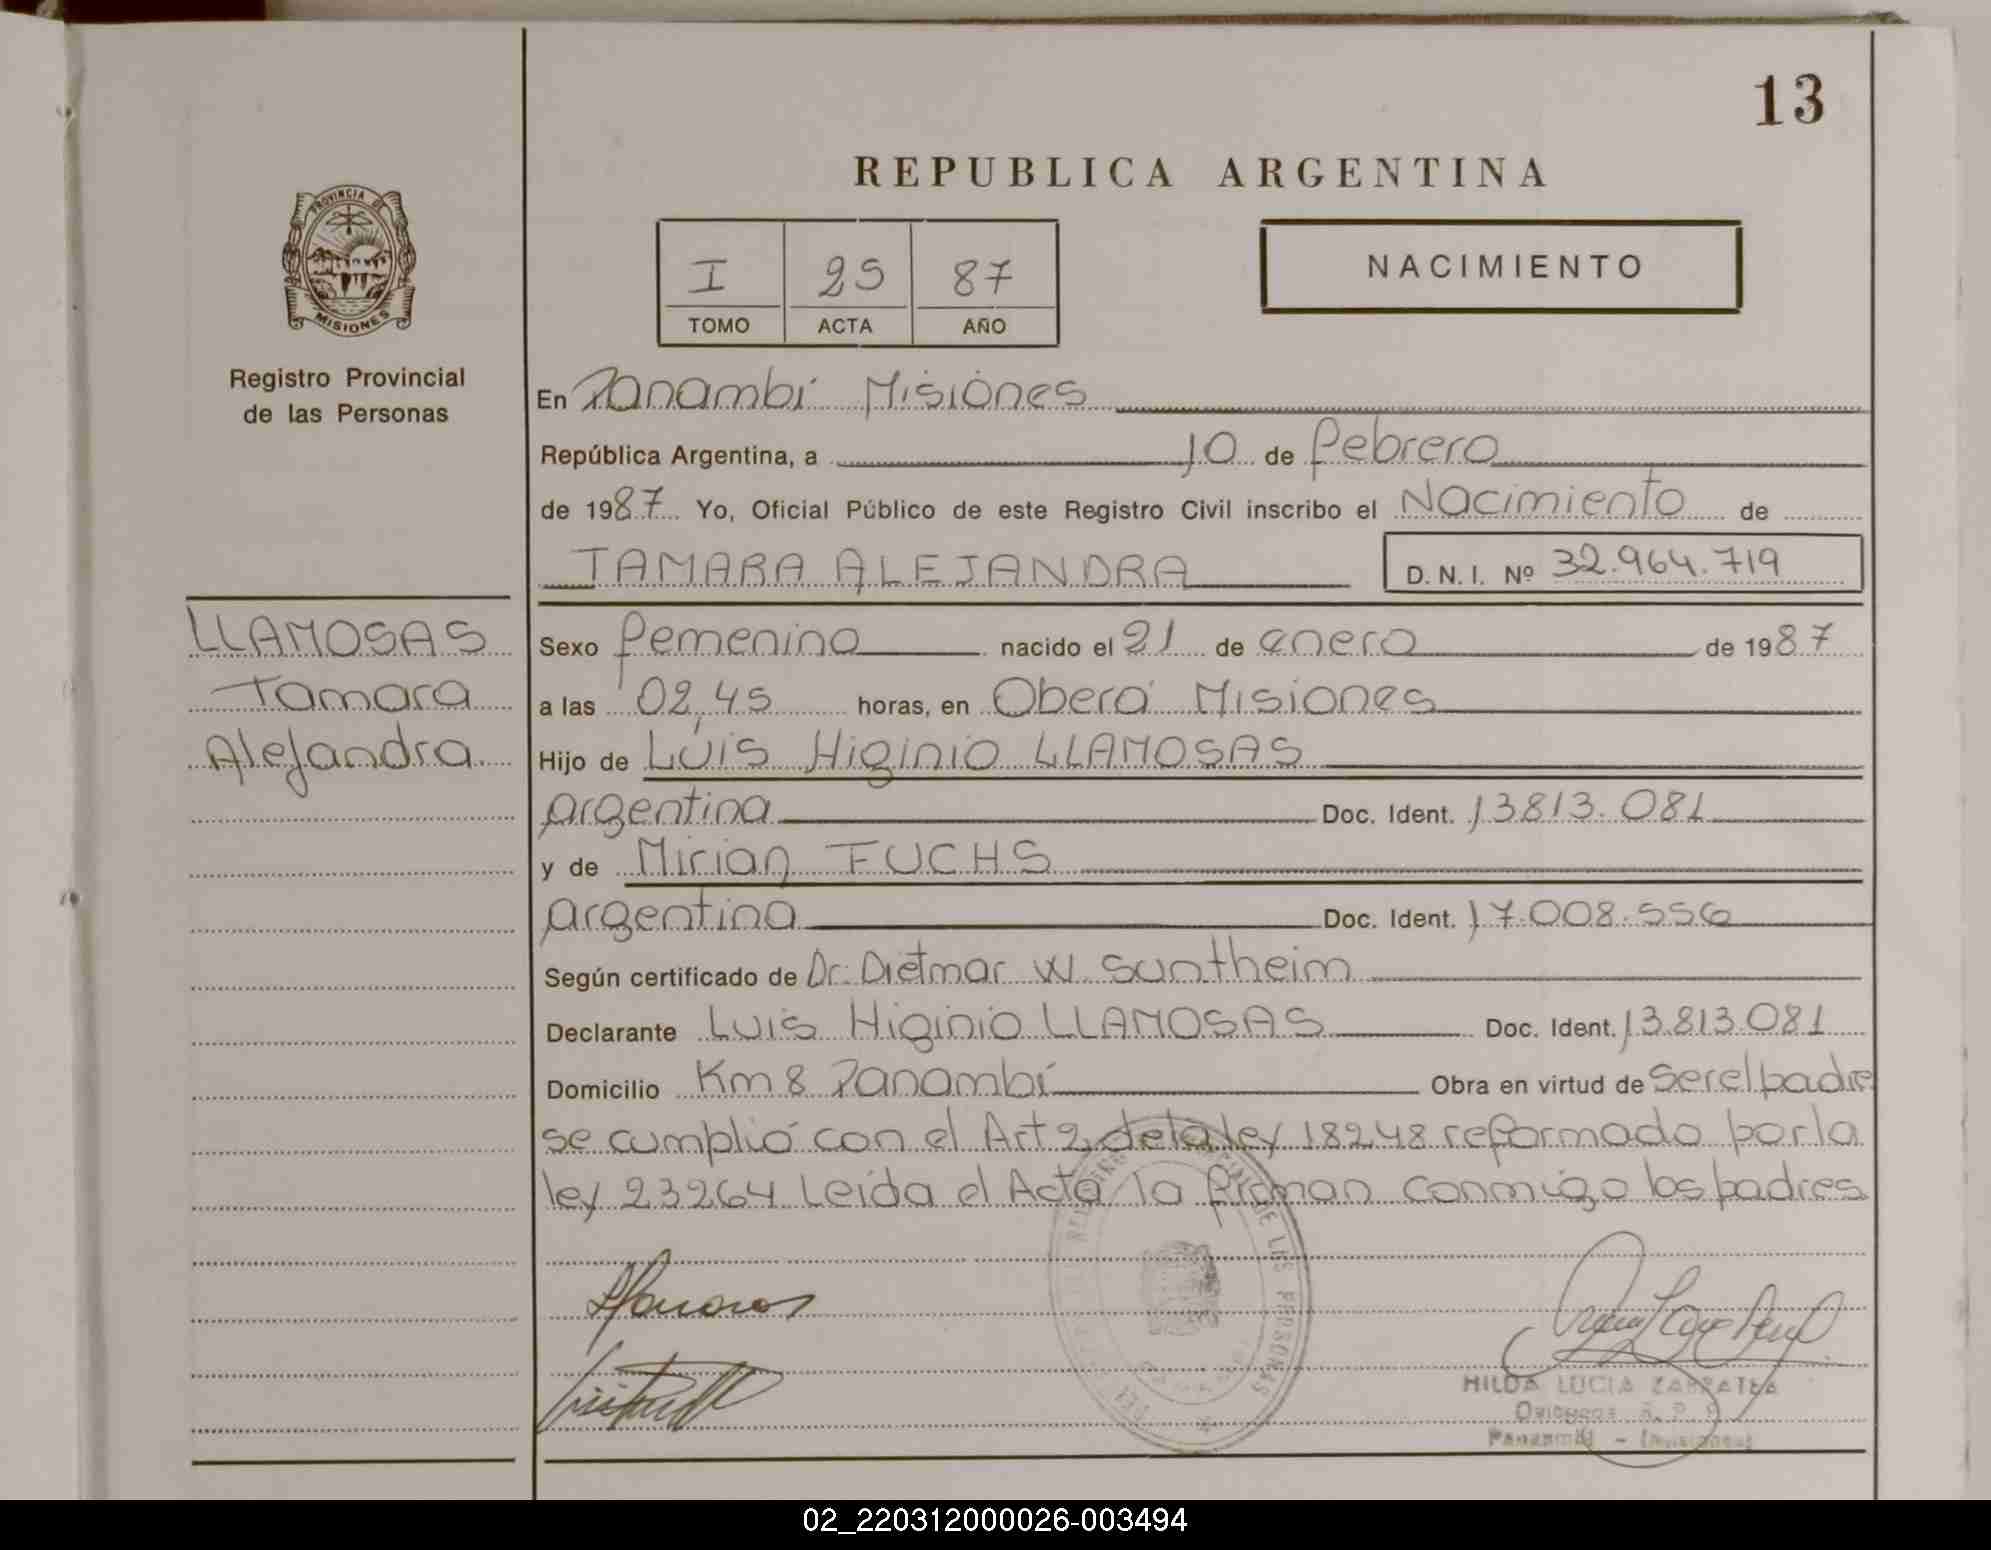 13
REPUBLICA ARGENTINA
PROVINCIA DE
MISIONES
Registro Provincial
de las Personas
I 25 87
TOMO ACTA AÑO
NACIMIENTO
En Panambí Misiones
República Argentina, a 10 de febrero
de 1987 Yo, Oficial Público de este Registro Civil inscribo el Nacimiento de
TAMARA ALEJANDRA D.N.I. Nº 32.964.719
LLAMOSAS
Tamara
Alejandra
Sexo femenino nacido el 21 de enero de 1987
a las 02,45 horas, en Oberá Misiones
Hijo de Luis Higinio LLAMOSAS
argentina Doc. Ident. 13813.081
y de Mirian FUCHS
argentina Doc. Ident. 17.008.556
Según certificado de Dr. Dietmar W. Suntheim
Declarante Luis Higinio LLAMOSAS Doc. Ident. 13.813.081
Domicilio Km 8 Panambí Obra en virtud de ser el padre
se cumplió con el Art 2 de la ley 18248 reformado por la
ley 23264 Leida el Acta la firman conmigo los padres
DE LAS PERSONAS
HILDA LUCIA
Panambí - (Misiones)
02_220312000026-003494